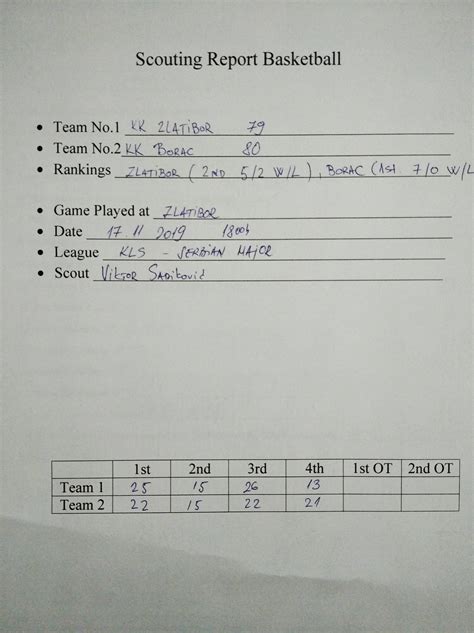 Scouting Report Basketball
• Team No.1 KK ZLATIBOR 79
• Team No.2 KK BORAC 80
• Rankings ZLATIBOR (2ND 5/2 W/L), BORAC (1ST 7/0 W/L
• Game Played at ZLATIBOR
• Date 17 11 2019 1800h
• League KLS - SERBIAN MAJOR
• Scout Viktor Sadiković
1st 2nd 3rd 4th 1st OT 2nd OT
Team 1 25 15 26 13
Team 2 22 15 22 21